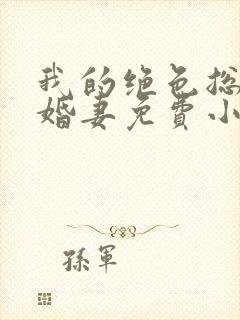 我的绝色总
婚妻免費小
孫軍